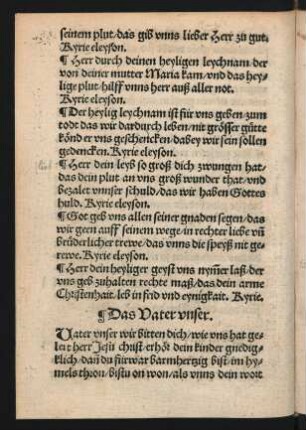 seinem plut/das gib vnns lieber Herr zu gut.
Kyrie eleyson.
¶ Herr durch deinen heyligen leychnam/der
von deiner mutter Maria kam/vnd das hey-
lige plut/hilff vnns herr auß aller not.
Kyrie eleyson.
¶ Der heylig leychnam ist für vns geben/zum
todt das wir dardurch leben/nit grösser gütte
könd er vns geschencken/dabey wir sein sollen
gedencken. Kyrie eleyson.
¶ Herr dein leyb so groß dich zwungen hat/
das dein plut an vns groß wunder that/vnd
bezalet vnnser schuld/das wir haben Gottes
huld. Kyrie eleyson.
¶ Got geb vns allen seiner gnaden segen/das
wir geen auff seinem wege/in rechter liebe vñ
brüderlicher trewe/das vnns die speyß nit ge-
rewe. Kyrie eleyson.
¶ Herr dein heyliger geyst vns nym̃er laß/der
vns geb zuhalten rechte maß/das dein arme
Christenhait. leb in frid vnd eynigkait. Kyrie.
¶ Das Vater vnser.
Vater vnser wir bitten dich/wie vns hat ge-
lert herr Jesu christ/erhöt dein kinder gnedig-
klich/dan du fürwar barmhertzig bist/im hy-
mels thron/bistu on won/als vnns dein wort